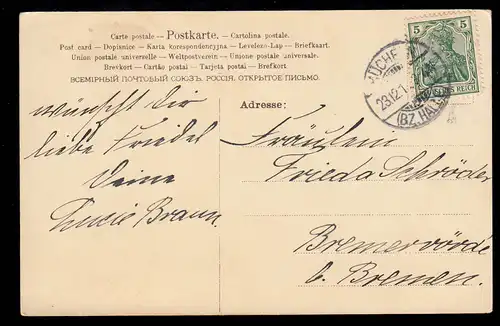 Carte postale – Postkarte. – Cartolina postale
Post card – Dopisnice – Karta korespondencyjna – Levelezo-Lap – Briefkaart.
Union postale universelle – Weltpostverein – Unione postale universale.
Brevkort – Cartão postal – Tarjeta postal – Brefkort.
ВСЕМІРНЫЙ ПОЧТОВЫЙ СОЮЗЪ. РОССІЯ. ОТКРЫТОЕ ПИСЬМО.
5 5
REICH
MÜCHE
23.12.1
(BZ. HALLE
wünscht Dir
liebe Friedel
Deine
Lucie Braun.
Adresse:
Fräulein
Frieda Schröder
Bremervörde
b. Bremen.